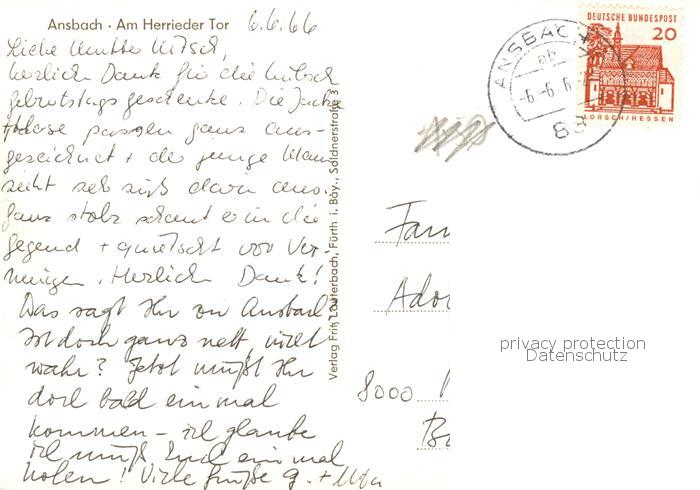 Ansbach · Am Herrieder Tor
6.6.66
Liebe Mutter Kitsch,
herzlichen Dank für die hübschen
Geburtstagsgeschenke. Die Jacke
+ Hose passen ganz aus-
gezeichnet + der junge Mann
sieht sehr süß darin aus.
Ganz stolz schaut er in die
Gegend + quietscht vor Ver-
gnügen. Herzlichen Dank!
Was sagt Ihr zu Ansbach?
Ist doch ganz nett, nicht
wahr? Jetzt müßt Ihr
doch bald einmal
kommen – ich glaube
ich muß Euch einmal
holen! Viele Grüße G. +
Verlag Fritz Lauterbach, Fürth i. Bay., Saldnerstraße 3
ANSBACH
-6.-6.6
88
DEUTSCHE BUNDESPOST
20
LORSCH/HESSEN
Fam
Ado
8000
privacy protection
Datenschutz